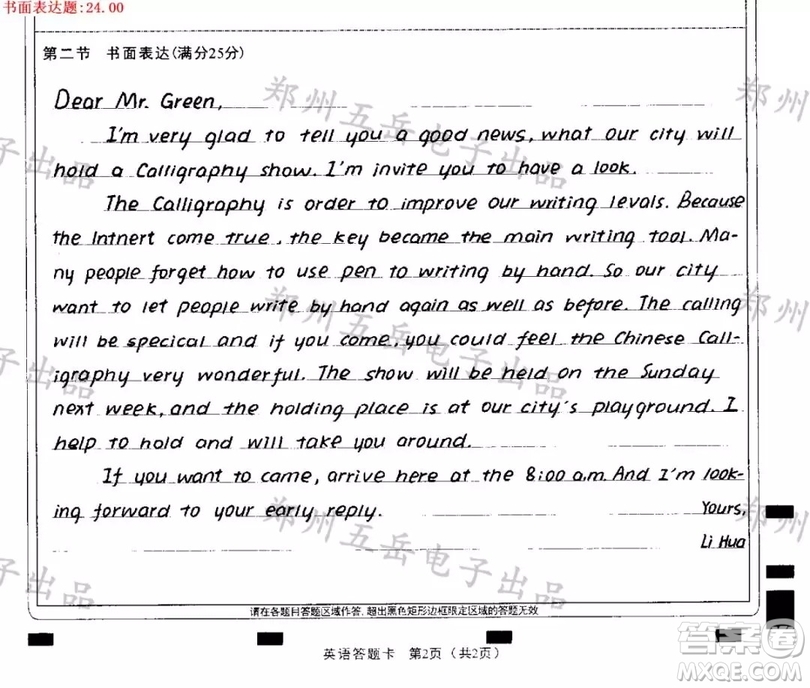 书面表达题:24.00
第二节 书面表达(满分25分)
Dear Mr. Green,
I'm very glad to tell you a good news, what our city will
hold a Calligraphy show. I'm invite you to have a look.
The Calligraphy is order to improve our writing levals. Because
the Intnert come true, the key became the main writing tool. Ma-
ny people forget how to use pen to writing by hand. So our city
want to let people write by hand again as well as before. The calling
will be specical and if you come, you could feel the Chinese Call-
igraphy very wonderful. The show will be held on the Sunday
next week, and the holding place is at our city's playground. I
help to hold and will take you around.
If you want to came, arrive here at the 8:00 a.m. And I'm look-
ing forward to your early reply. Yours,
Li Hua
请在各题目答题区域作答,超出黑色矩形边框限定区域的答题无效
英语答题卡 第2页(共2页)
郑州五岳电子出品
郑州五岳电子出品
郑州五岳电子出品
答案圈
MXQE.COM